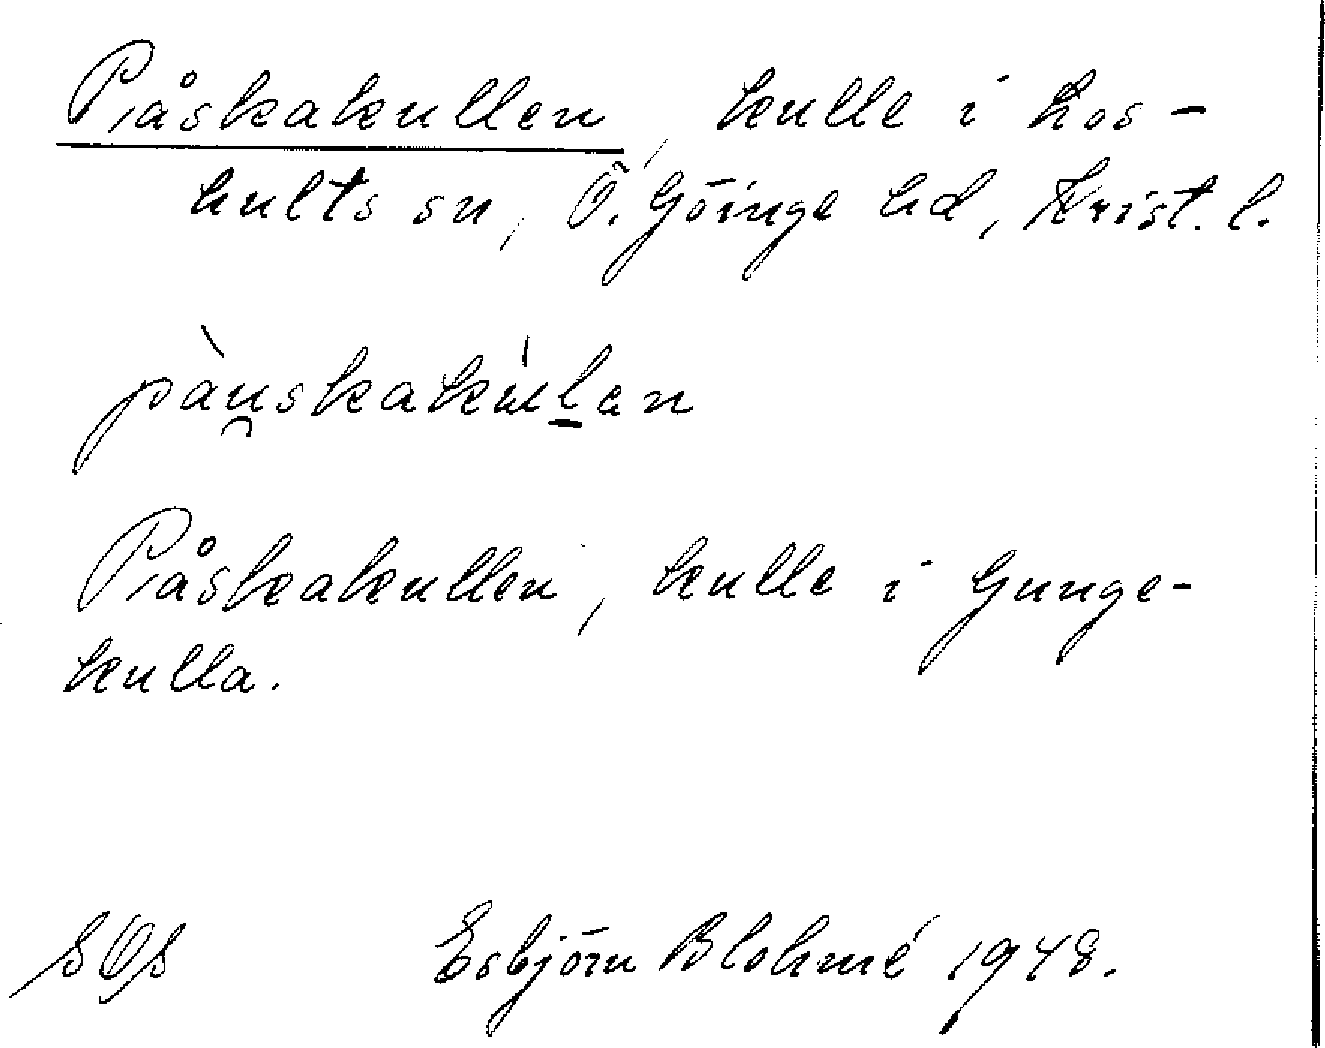 Påskakullen, kulle i Los-
hults sn, Ö. Göinge hd, Krist. l.
pàu̯skakùl̲an
Påskakullen, kulle i Gunge-
kulla.
Esbjörn Blohmé 1948.